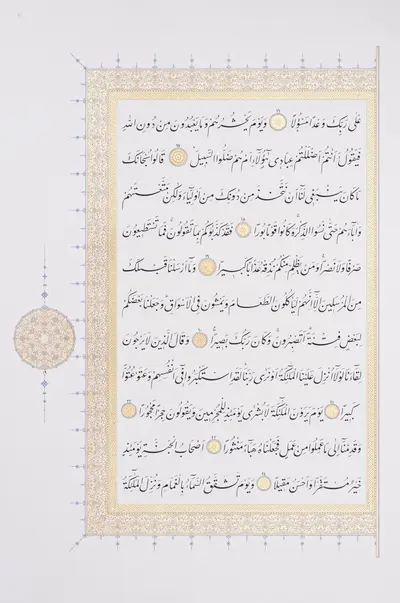 عَلَىٰ رَبِّكَ وَعْدًا مَسْئُولًا ۝ وَيَوْمَ يَحْشُرُهُمْ وَمَا يَعْبُدُونَ مِنْ دُونِ اللَّهِ
فَيَقُولُ ءَأَنْتُمْ أَضْلَلْتُمْ عِبَادِي هَٰؤُلَاءِ أَمْ هُمْ ضَلُّوا السَّبِيلَ ۝ قَالُوا سُبْحَانَكَ
مَا كَانَ يَنْبَغِي لَنَا أَنْ نَتَّخِذَ مِنْ دُونِكَ مِنْ أَوْلِيَاءَ وَلَٰكِنْ مَتَّعْتَهُمْ
وَآبَاءَهُمْ حَتَّىٰ نَسُوا الذِّكْرَ وَكَانُوا قَوْمًا بُورًا ۝ فَقَدْ كَذَّبُوكُمْ بِمَا تَقُولُونَ فَمَا تَسْتَطِيعُونَ
صَرْفًا وَلَا نَصْرًا وَمَنْ يَظْلِمْ مِنْكُمْ نُذِقْهُ عَذَابًا كَبِيرًا ۝ وَمَا أَرْسَلْنَا قَبْلَكَ
مِنَ الْمُرْسَلِينَ إِلَّا إِنَّهُمْ لَيَأْكُلُونَ الطَّعَامَ وَيَمْشُونَ فِي الْأَسْوَاقِ وَجَعَلْنَا بَعْضَكُمْ
لِبَعْضٍ فِتْنَةً أَتَصْبِرُونَ وَكَانَ رَبُّكَ بَصِيرًا ۝ وَقَالَ الَّذِينَ لَا يَرْجُونَ
لِقَاءَنَا لَوْلَا أُنْزِلَ عَلَيْنَا الْمَلَائِكَةُ أَوْ نَرَىٰ رَبَّنَا لَقَدِ اسْتَكْبَرُوا فِي أَنْفُسِهِمْ وَعَتَوْا عُتُوًّا
كَبِيرًا ۝ يَوْمَ يَرَوْنَ الْمَلَائِكَةَ لَا بُشْرَىٰ يَوْمَئِذٍ لِلْمُجْرِمِينَ وَيَقُولُونَ حِجْرًا مَحْجُورًا ۝
وَقَدِمْنَا إِلَىٰ مَا عَمِلُوا مِنْ عَمَلٍ فَجَعَلْنَاهُ هَبَاءً مَنْثُورًا ۝ أَصْحَابُ الْجَنَّةِ يَوْمَئِذٍ
خَيْرٌ مُسْتَقَرًّا وَأَحْسَنُ مَقِيلًا ۝ وَيَوْمَ تَشَقَّقُ السَّمَاءُ بِالْغَمَامِ وَنُزِّلَ الْمَلَائِكَةُ